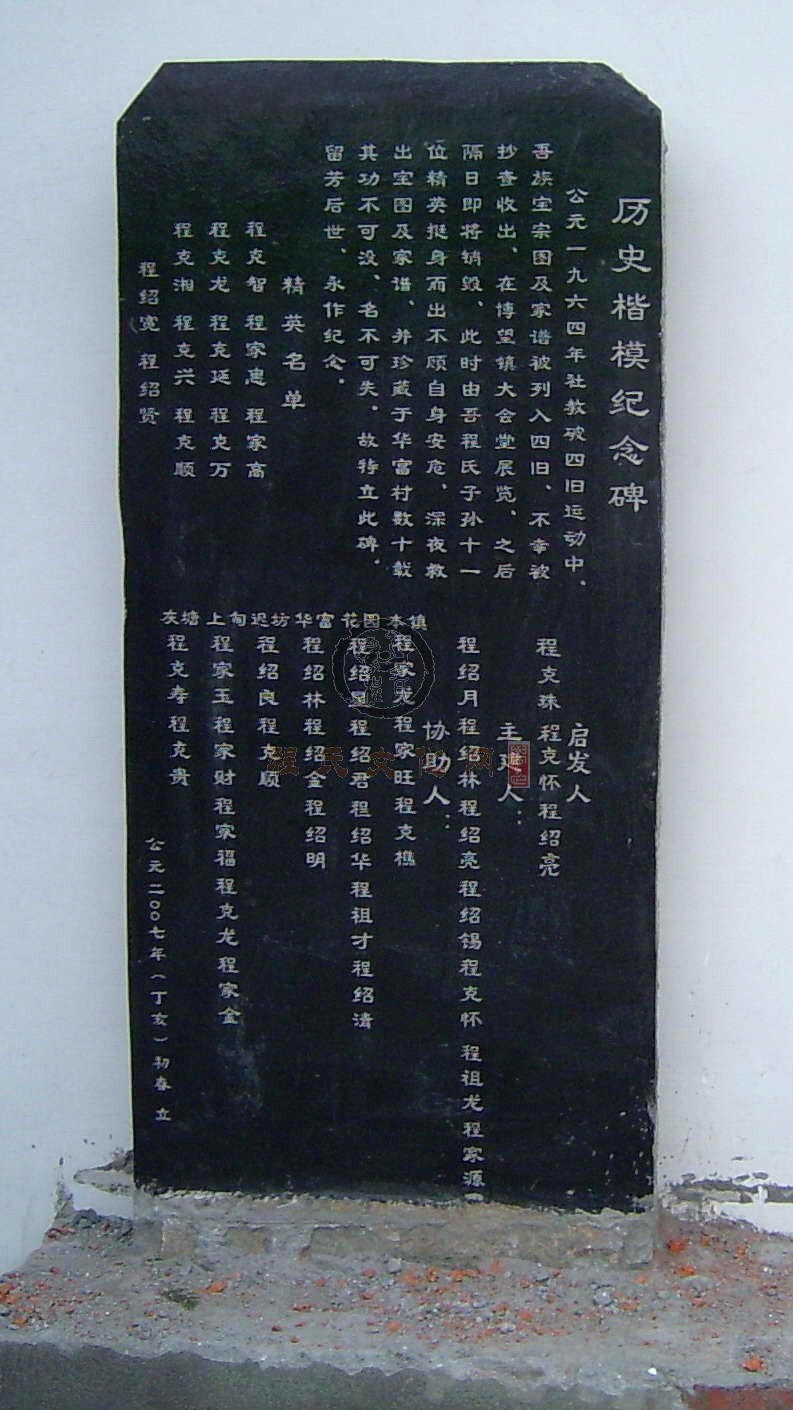 历史楷模纪念碑
公元一九六四年社教破四旧运动中、
吾族宝宗图及家谱被列入四旧、不幸被
抄查收出、在博望镇大会堂展览、之后
隔日即将销毁、此时由吾程氏子孙十一
位精英挺身而出不顾自身安危、深夜救
出宝图及家谱、并珍藏于华富村数十载
其功不可没、名不可失。故特立此碑、
留芳后世、永作纪念。
精英名单
程克智 程家惠 程家高
程克龙 程克延 程克万
程克湘 程克兴 程克顺
程绍宽 程绍贤
启发人
程克珠 程克怀程绍亮
主建人：
程绍月程绍林程绍亮程绍锡程克怀 程祖龙程家源
协助人：
本镇 程家龙程家旺程克樵
花园 程绍星程绍君程绍华程祖才程绍清
华富 程绍林程绍金程绍明
迟坊 程绍良程克顺
上甸 程家玉程家财程家福程克龙程家金
灰塘 程克寿程克贵
公元二〇〇七年（丁亥）初春 立
程氏文化网